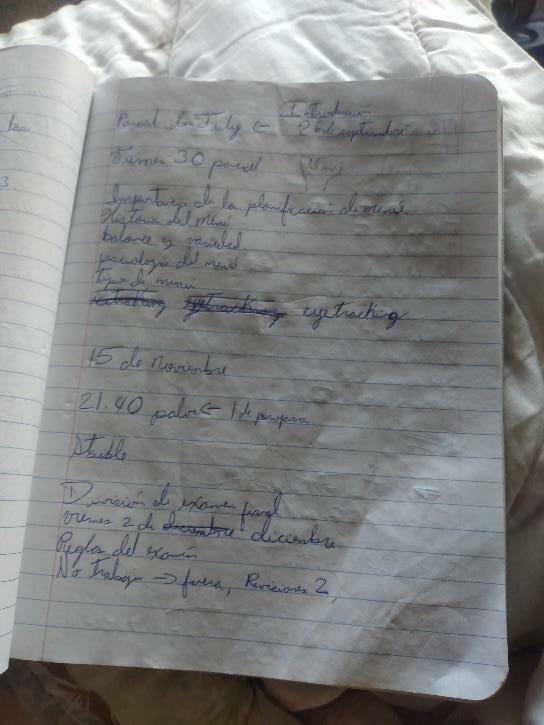 Introducción
Parcial de July ← 26 de septiembre
Viernes 30 parcial
Importancia de la planificación de menú
Historia del menú
balance y variedad
psicología del menú
tipos de menu
eyetracking
15 de noviembre
21.40 ← 1 de propina
Double
División de examen final
viernes 2 de diciembre
Reglas del exámen
No trabajo → fuera, Revisiones 2,